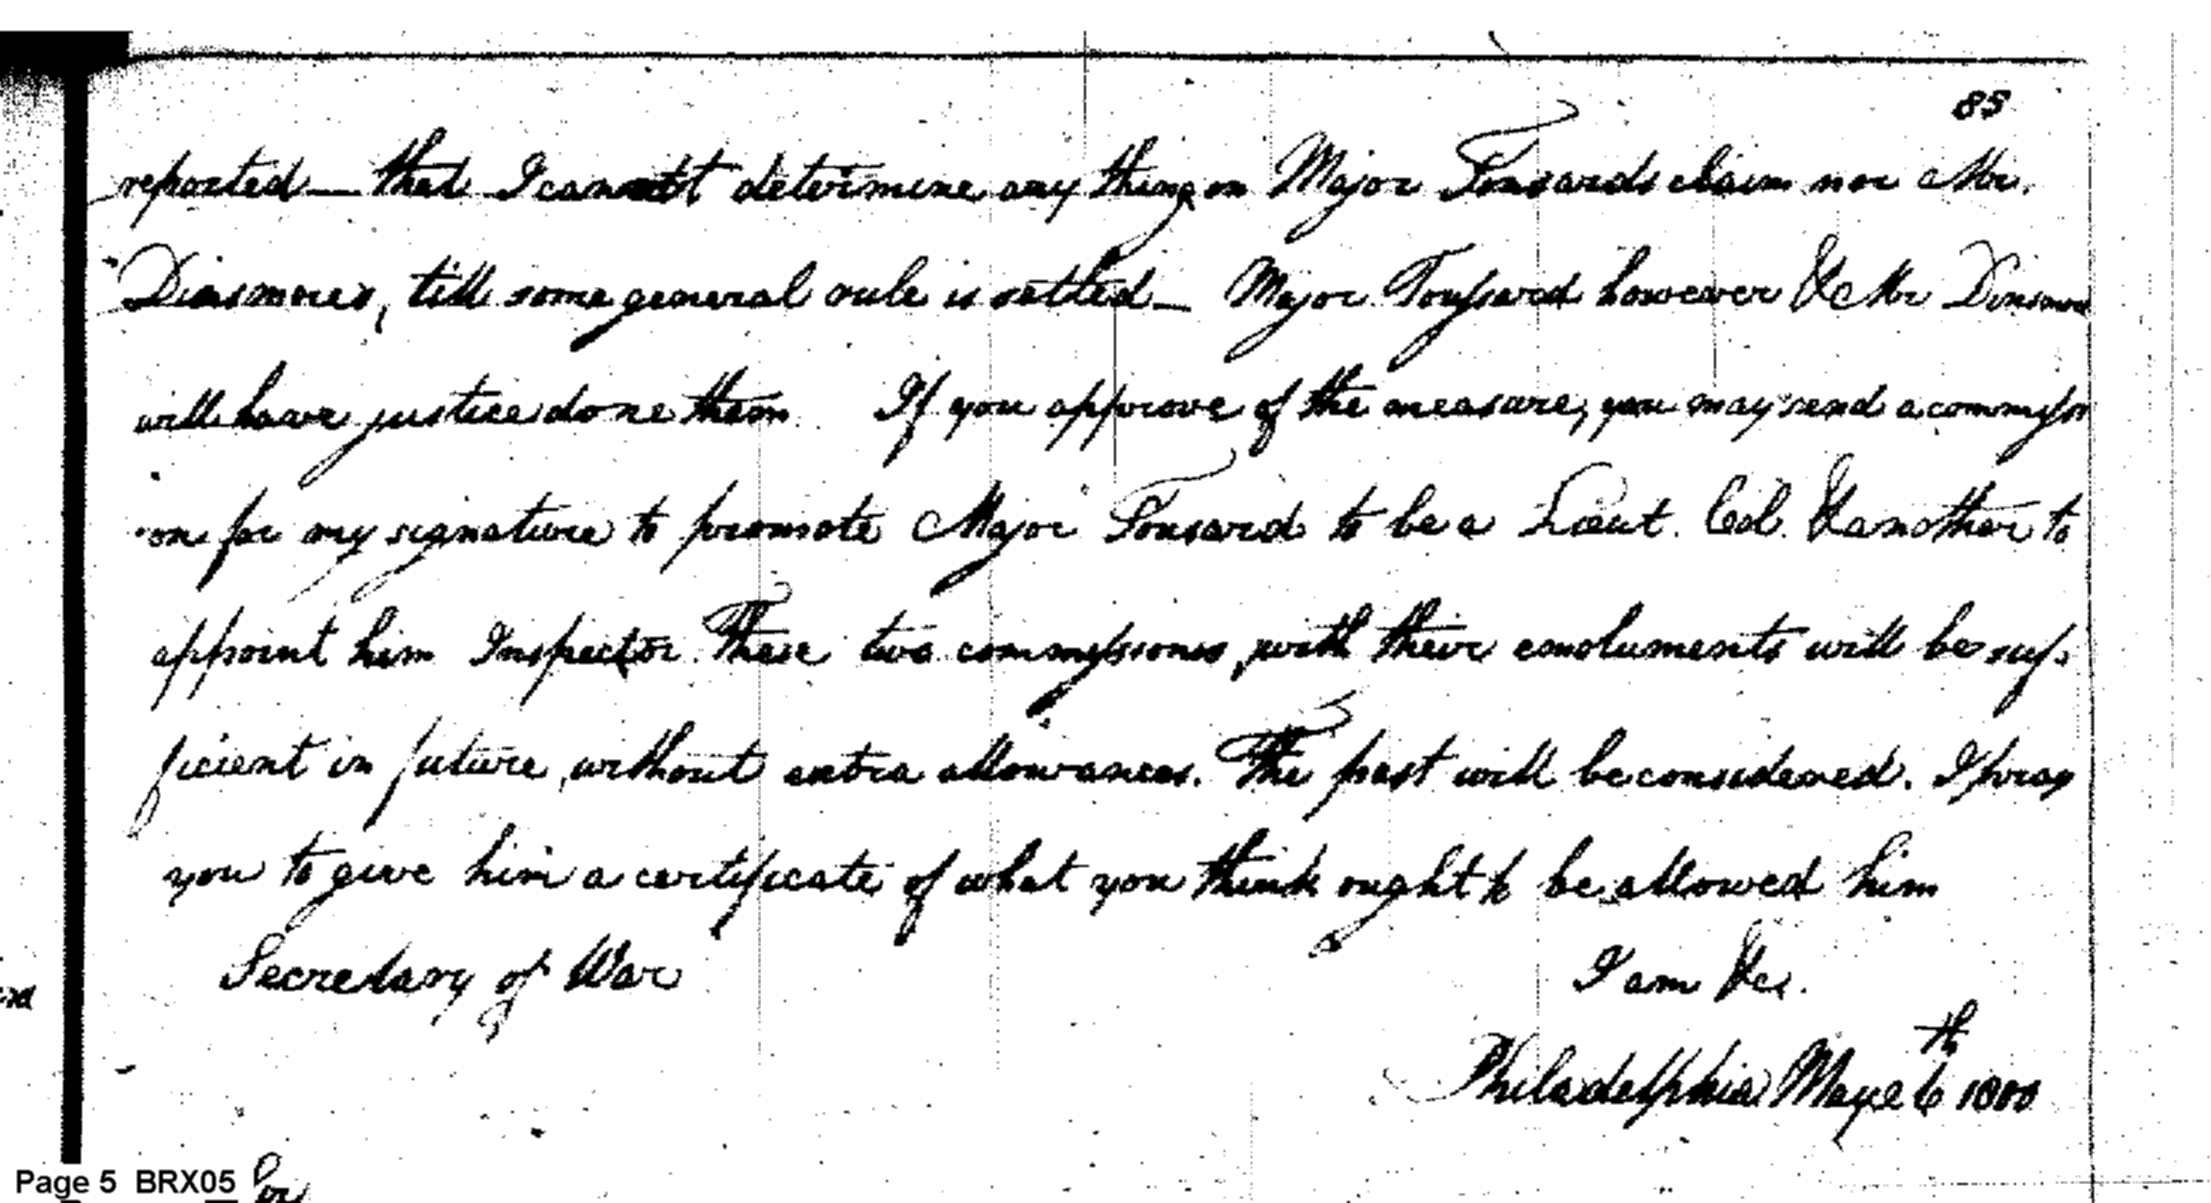 85
reported — that I cannot determine any thing on Major Tousards claim nor Mr.
Dinsmores, till some general rule is settled — Major Toussard however & Mr Dinsmore
will have justice done them If you approve of the measure, you may send a commissi
on for my signature to promote Major Tousard to be a Lieut. Col. & another to
appoint him Inspector. These two commissions, with their emoluments will be suf-
ficient in future, without extra allowances. The past will be considered. I pray
you to give him a certificate of what you think ought to be allowed him
Secretary of War I am &c.
Philadelphia May 26th 1800
Page 5 BRX05